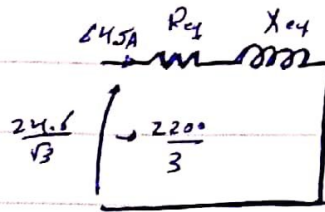 645A Req Xeq
24.6/√3 → 2200/3